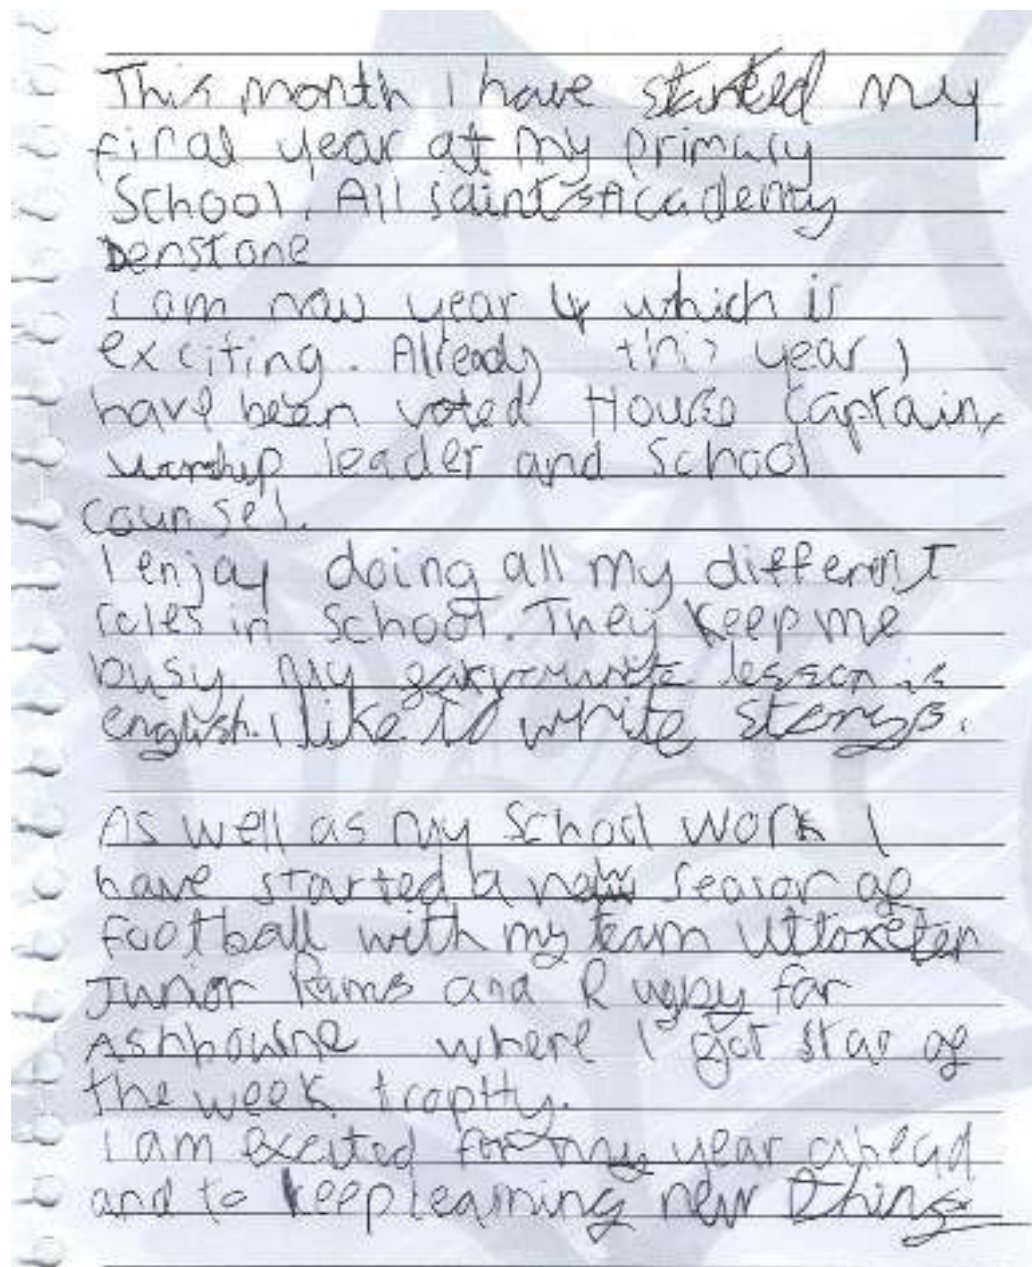 This month I have started my
final year at my primary
School. All saints Academy
Denstone
I am now year 4 which is
exciting. Already this year I
have been voted House Captain,
worship leader and School
counsel.
I enjoy doing all my different
roles in School. They keep me
busy. My lesson is
english. I like to write storys.
As well as my School work I
have started a new season of
football with my team Uttoxeter
Junior Rams and Rugby for
Ashbourne where I got star of
the week trophy.
I am excited for my year ahead
and to keep learning new things